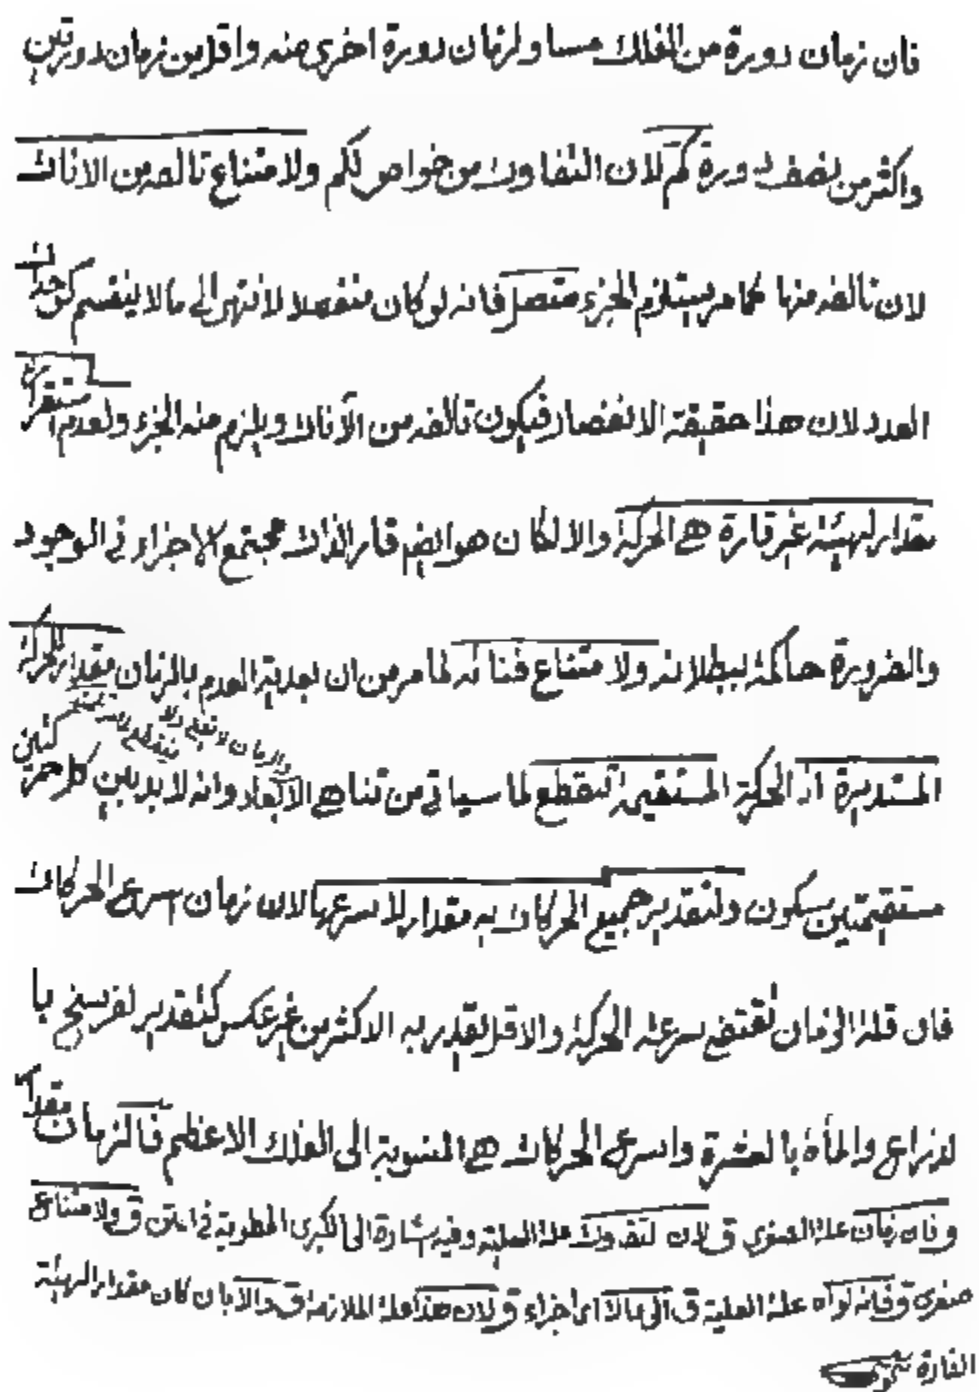 فان زمان دورة من الفلك مساو لزمان دورة اخرى منه واقل من زمان دورتين
واكثر من نصف دورة كم لان التفاوت من خواص لكم ولامتناع تالفه من الانات
لان تالفه منها كما مر يستلزم الجزء متصل فانه لو كان منفصلا لانتهى الى ما لا ينقسم كوحدات
العدد لان هذا حقيقة الانفصال فيكون تالفه من الآنات ويلزم منه الجزء ولعدم استقراره
مقدار لهيئة غير قارة هى الحركة والا لكان هو ايضم قار الذات مجتمع الاجزاء فى الوجود
والضرورة حاكمة ببطلانه ولامتناع فنائه لما مر من ان بعدية العدم بالزمان مقدار للحركة
المستديرة اذ الحركة المستقيمة تنقطع لما سياتى من تناهى الابعاد وانه لابد بين كل حركتين
مستقيمتين سكون ولتقدير جميع الحركات به مقدار لاسرعها لان زمان اسرع الحركات
فان قلة الزمان تقتضى سرعة الحركة والاقل تقدير به الاكثر من غير عكس كتقدير لفرسخ با
لذراع والمأة بالعشرة واسرع الحركات هى المنسوبة الى الفلك الاعظم فالزمان مقدا
و فان زمان علة الصغرى ق لان لتفاوت علة العلية وفيه اشارة الى الكبرى المطوية فى المتن ق ولامتناع
صغرى ق فانه لو اه علة العلية ق الى مالا اى اجزاء ق لان هذا علة الملازمة ق والا بان كان مقدار الهيئة
القارة